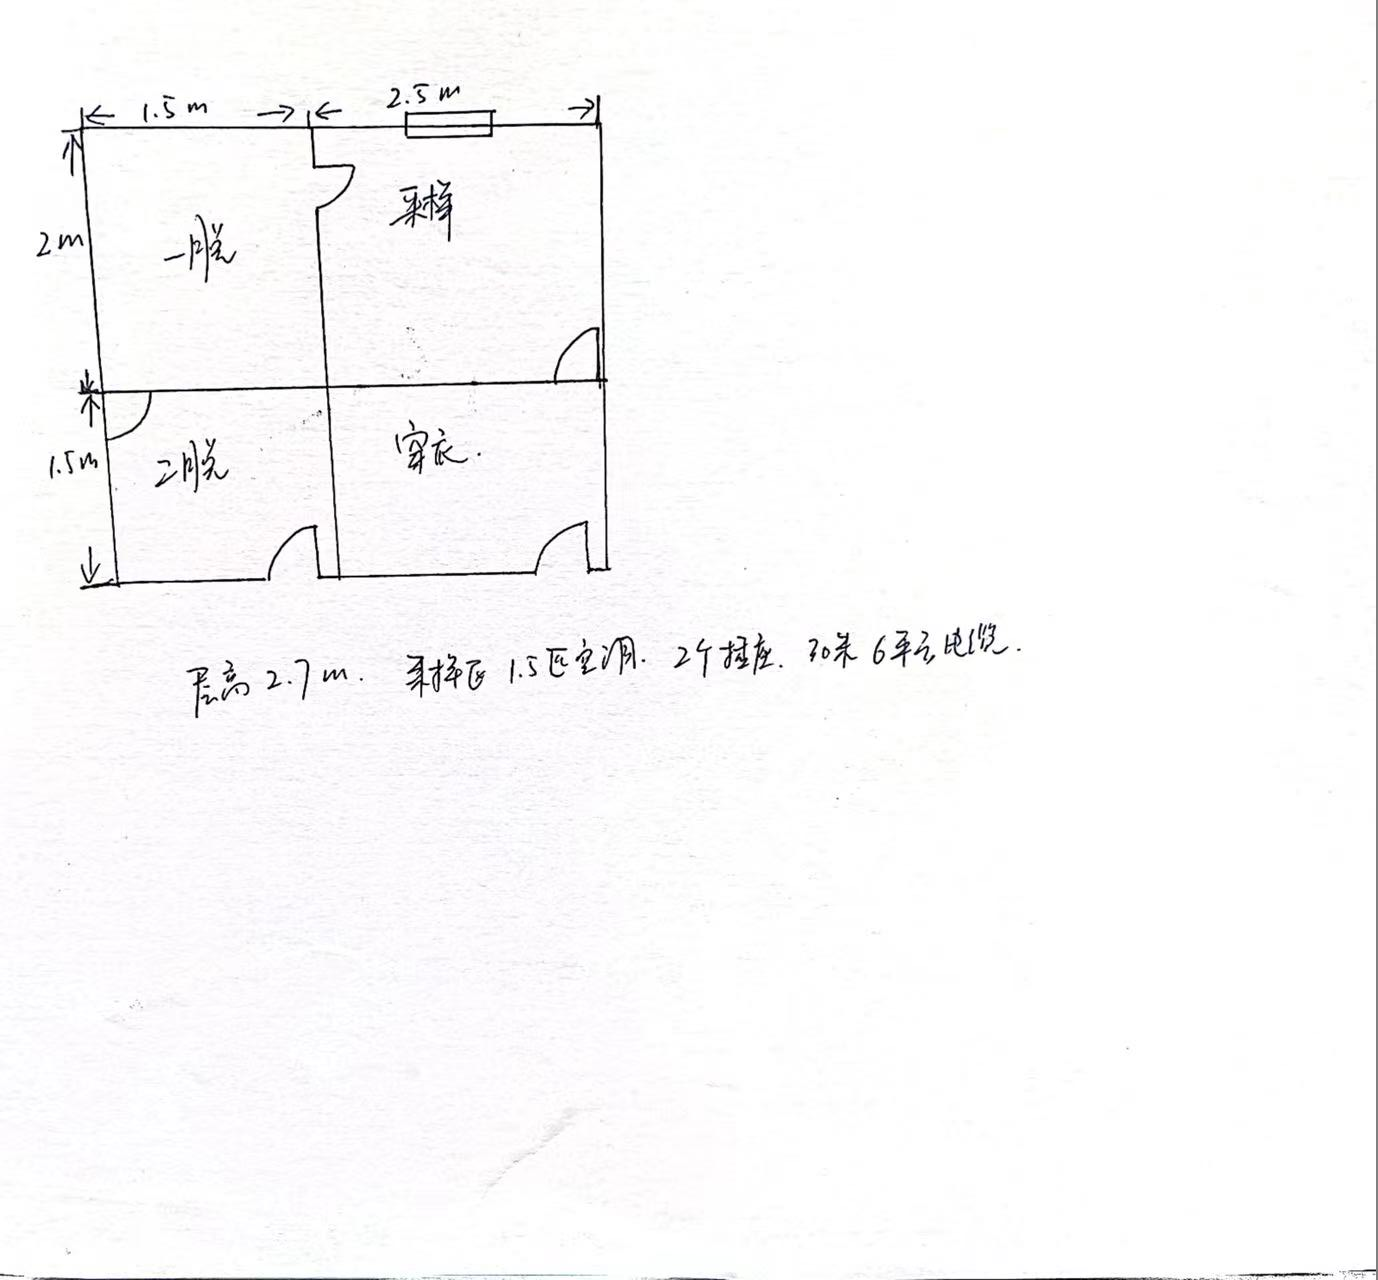 1.5m 2.5m
2m
一脱 采样
1.5m
二脱 穿衣.
层高2.7m. 采样区1.5匹空调. 2个插座. 30米6平方电缆.